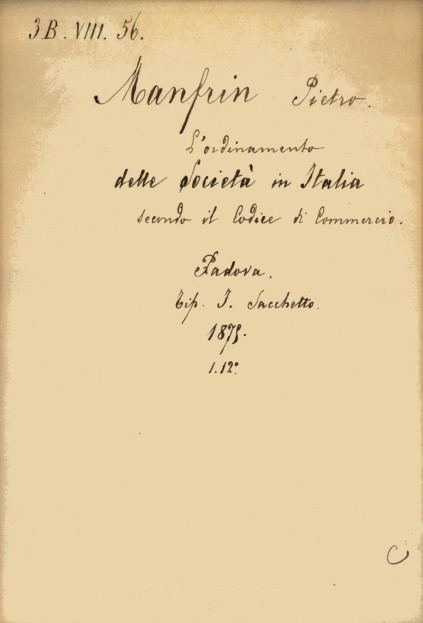 3B. VIII. 56.
Manfrin Pietro.
L'ordinamento
delle Società in Italia
secondo il Codice di Commercio.
Padova.
Tip. F. Sacchetto.
1875.
1.12°
C